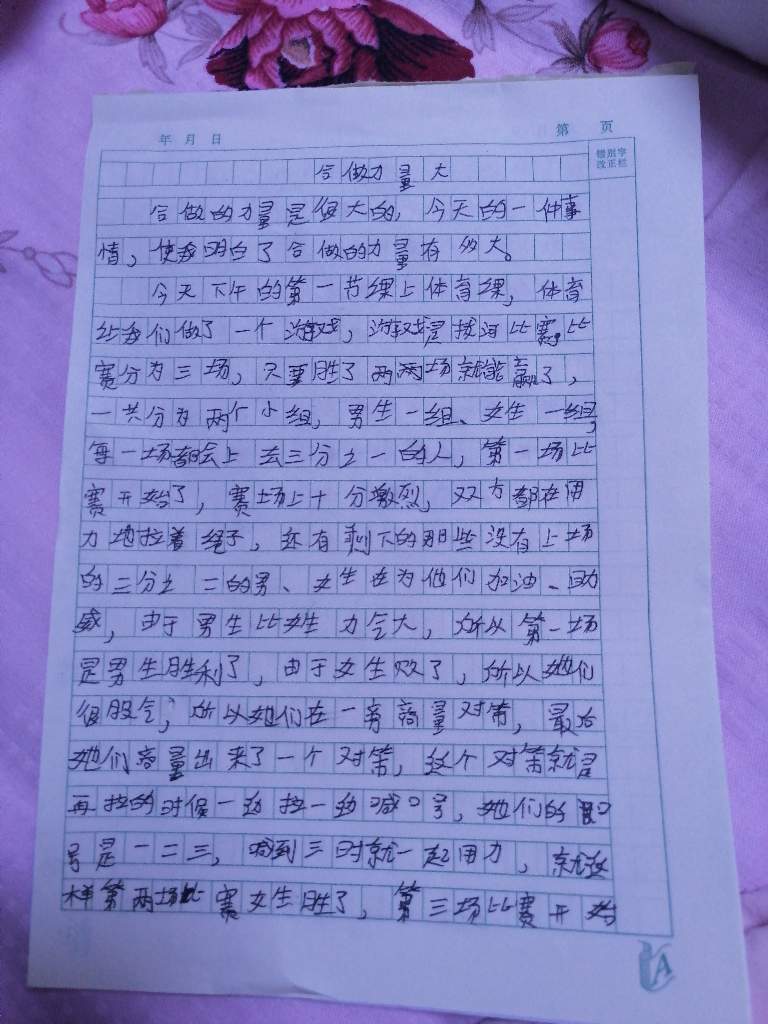 年 月 日
第 页
错别字
改正栏
合做力量大
合做的力量是很大的，今天的一件事
情，使我明白了合做的力量有多大。
今天下午的第一节课上体育课，体育
给我们做了一个游戏，游戏是拔河比赛，比
赛分为三场，只要胜了两两场就能赢了，
一共分为两个小组，男生一组、女生一组，
每一场都会上去三分之一的人，第一场比
赛开始了，赛场上十分激烈，双方都在用
力地拉着绳子，还有剩下的那些没有上场
的三分之二的男、女生在为他们加油、助
威，由于男生比女生力气大，所以第一场
是男生胜利了，由于女生败了，所以她们
很服气，所以她们在一旁商量对策，最后
她们商量出来了一个对策，这个对策就是
再拉的时候一边拉一边喊口号，她们的口
号是一二三，喊到三时就一起用力，就这
样第两场比赛女生胜了，第三场比赛开始
A